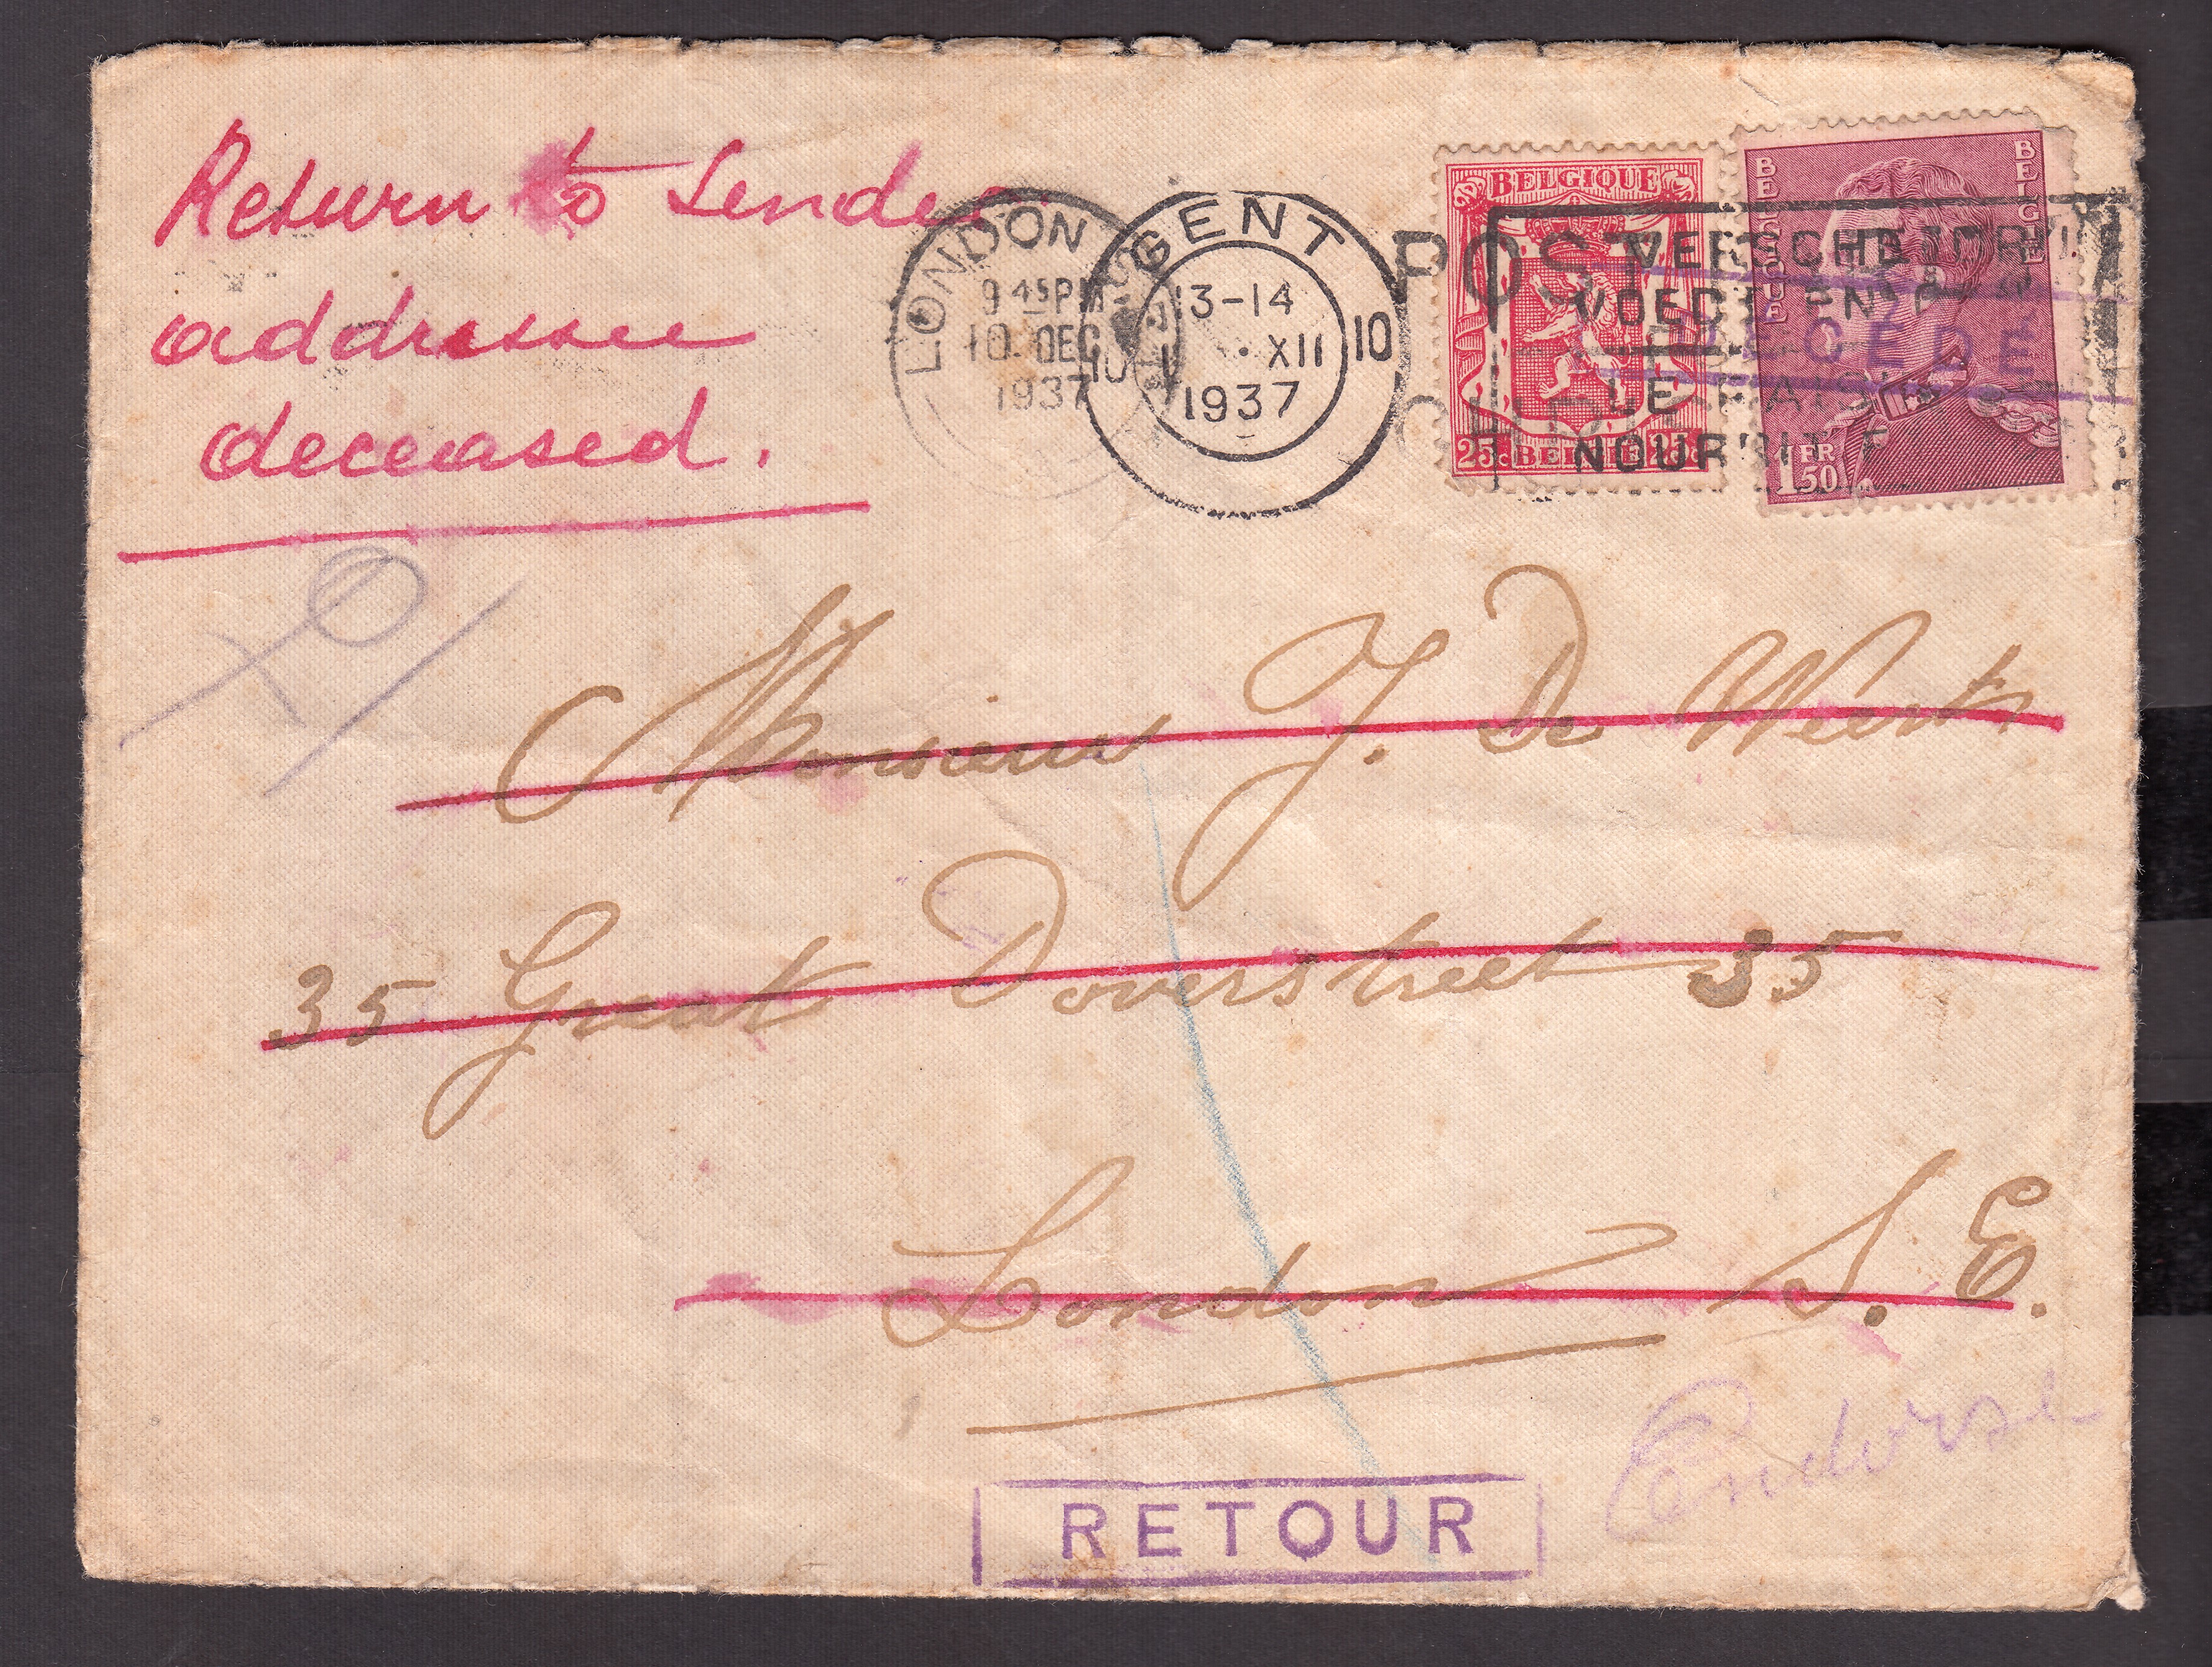 Return to Sender
addressee
deceased.
LONDON
9 45 PM
10 DEC
1937
GENT
13-14
10 XII 10
1937
POST
BELGIQUE
25c
BELGIQUE
BELGIE
1 FR 50
VOEDT EN
LE
NOURRIT
DECEDE
Monsieur J. De Weert
35 Great Doverstreet 35
London S. E.
RETOUR
Endorse